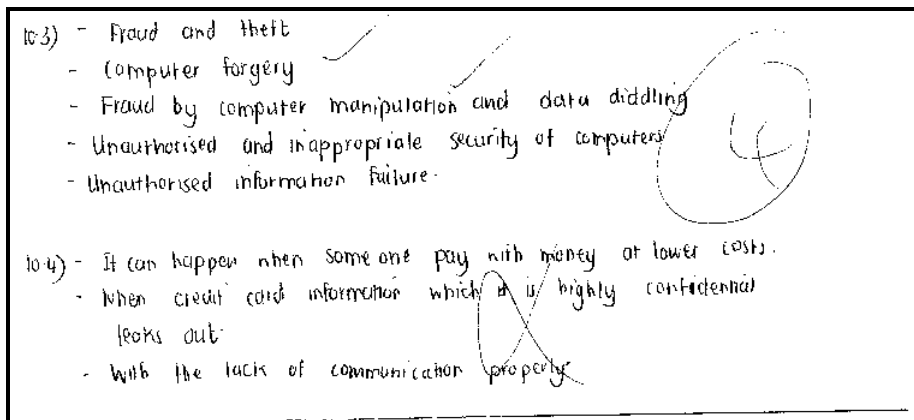 10.3) - Fraud and theft
- Computer forgery
- Fraud by computer manipulation and data diddling
- Unauthorised and inappropriate security of computers
- Unauthorised information failure.
4
10.4) - It can happen when some one pay with money at lower costs.
- When credit card information which is highly confidennial
leaks out.
- With the lack of communication properly.